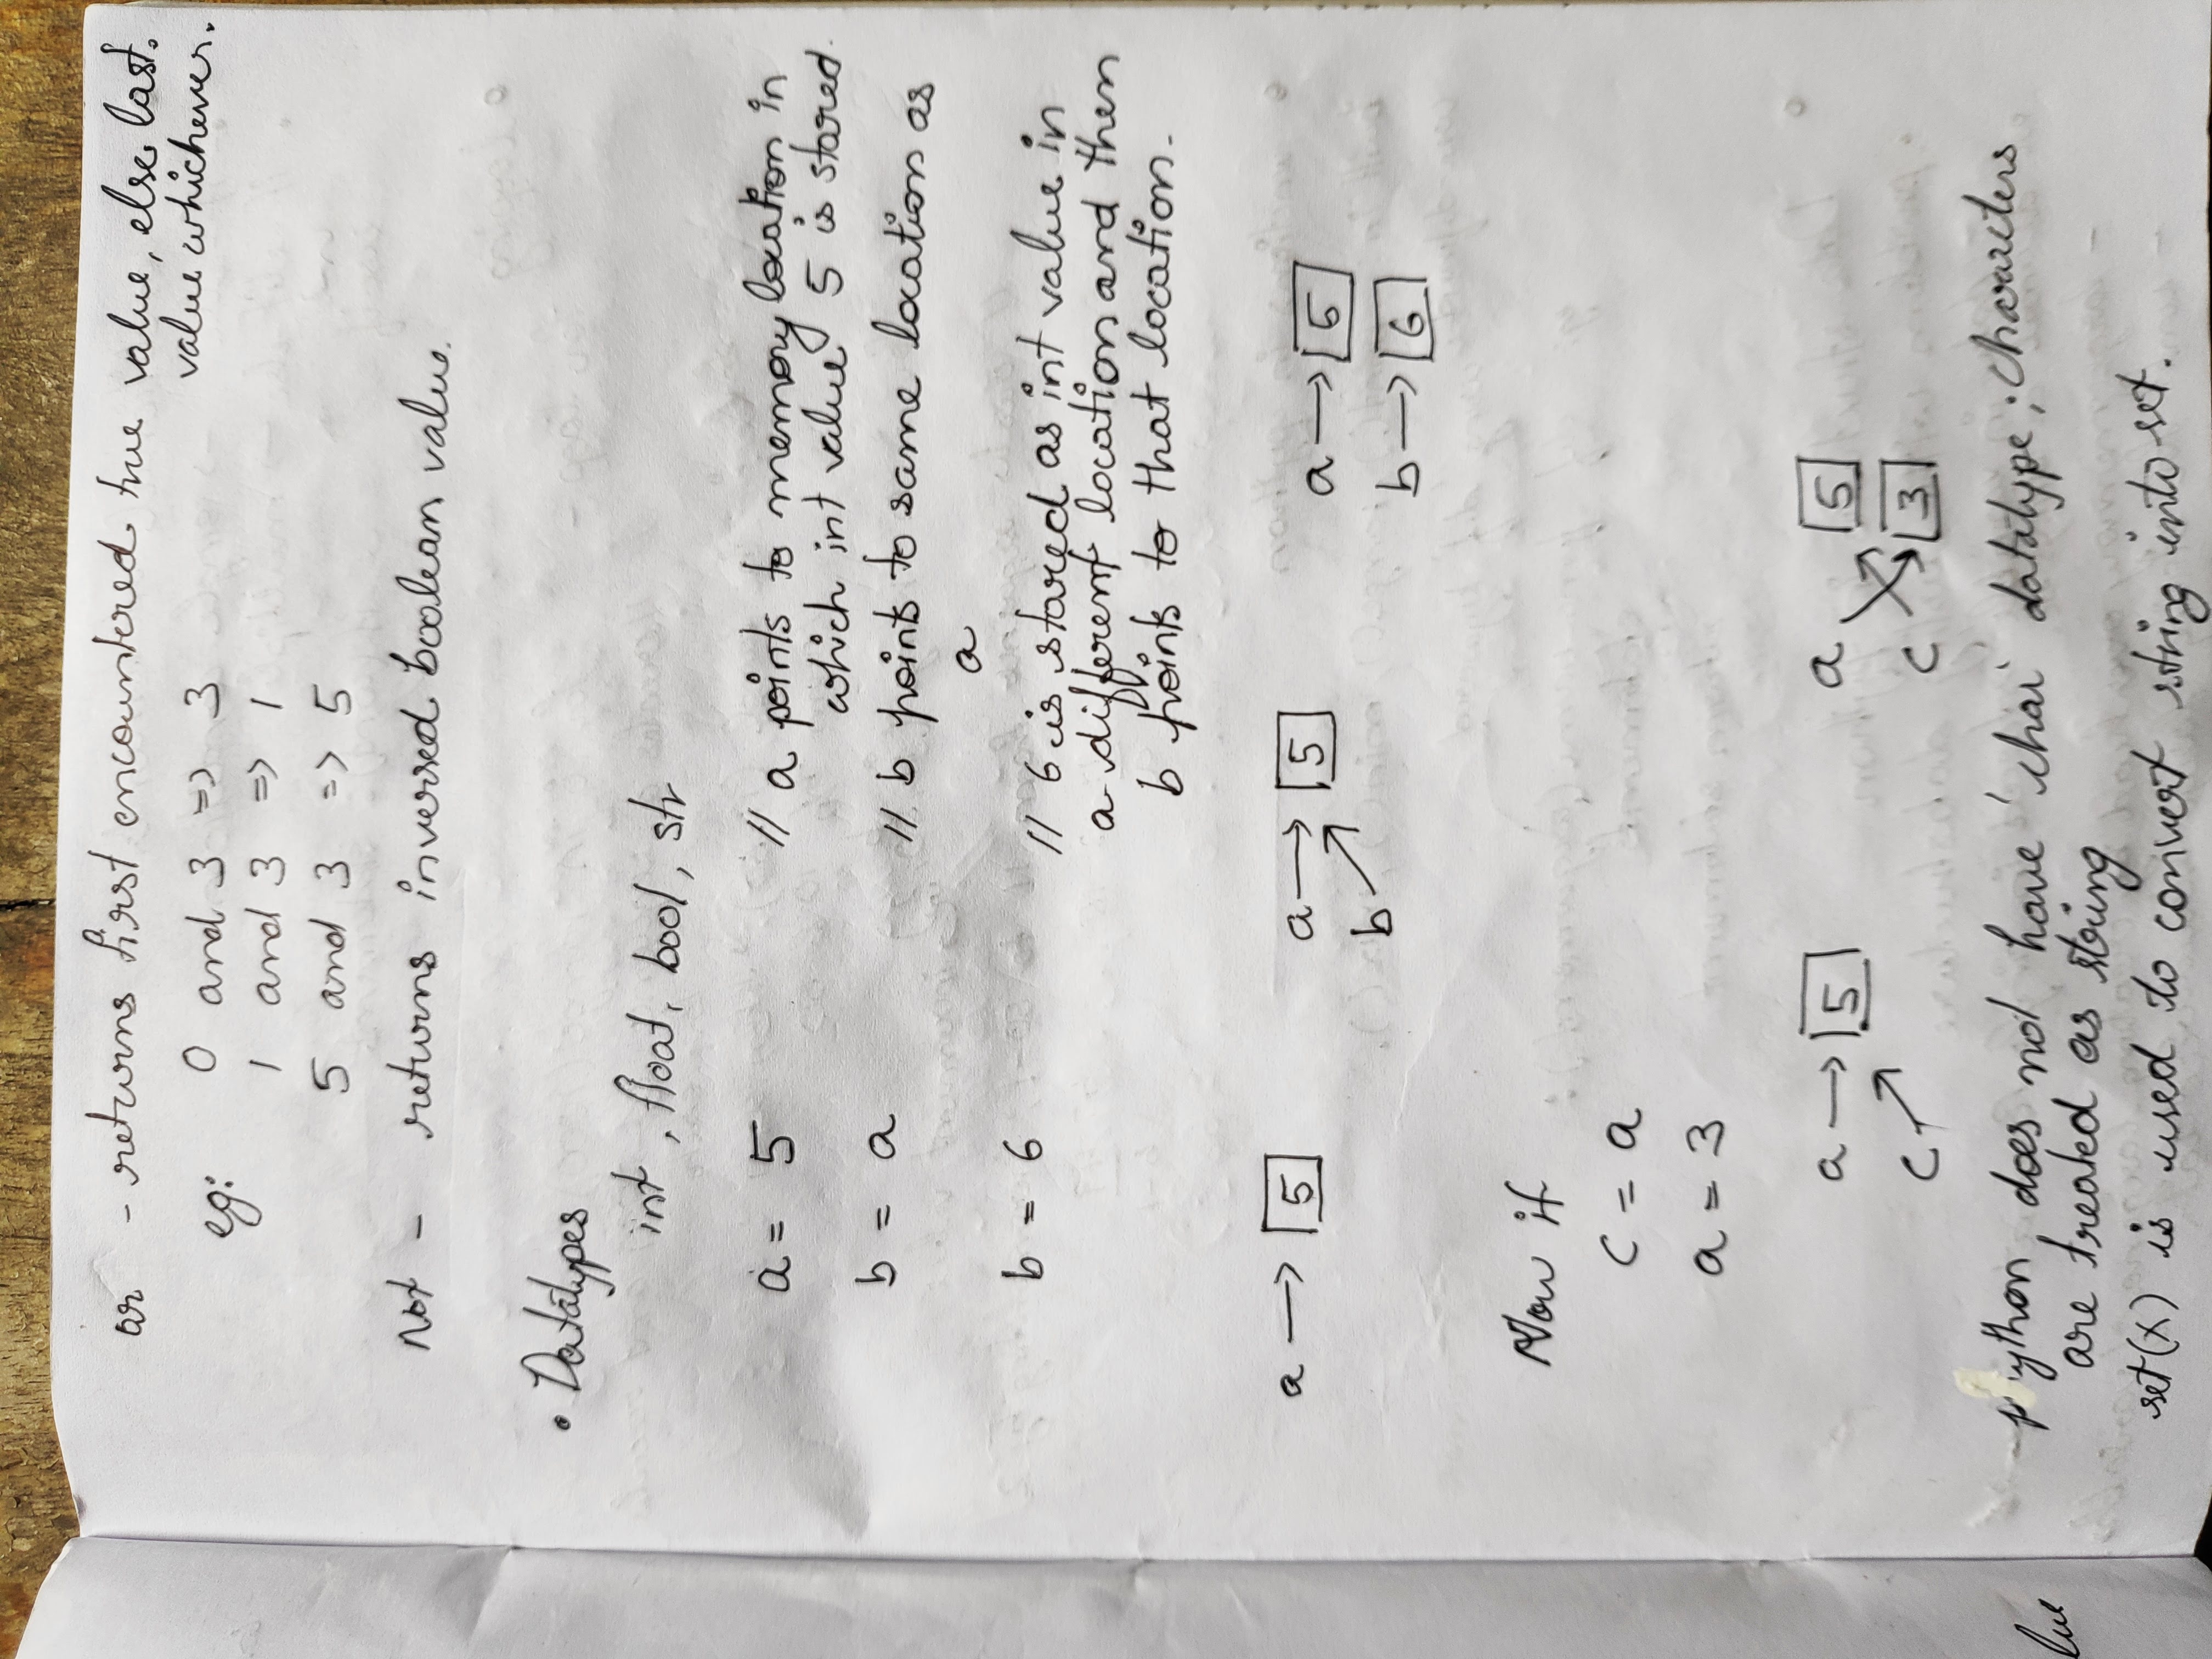 or - returns first encountered true value, else last.
value whichever.
eg: 0 and 3 => 3
1 and 3 => 1
5 and 3 => 5
Not - returns inversed boolean value.
• Datatypes
int, float, bool, str
a = 5 // a points to memory location in
which int value 5 is stored.
b = a // b points to same location as
a
b = 6 // 6 is stored as int value in
a different location and then
b points to that location.
a → 5 a → 5 a → 5
b b → 6
Now if
c = a
a = 3
a → 5 a 5
c c 3
python does not have 'char' datatype; characters
are treated as string
set(x) is used to convert string into set.
lue